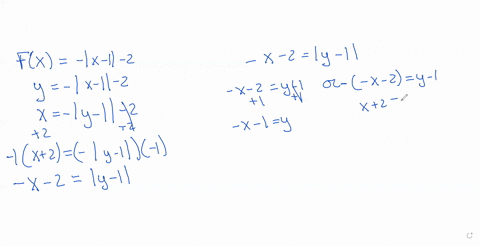 F(x) = -|x-1|-2
y = -|x-1|-2
x = -|y-1|-2
+2 +2
-1(x+2)=(-|y-1|)(-1)
-x-2 = |y-1|
-x-2 = |y-1|
-x-2 = y-1 or -(-x-2)=y-1
+1 +1
x+2 -
-x-1=y